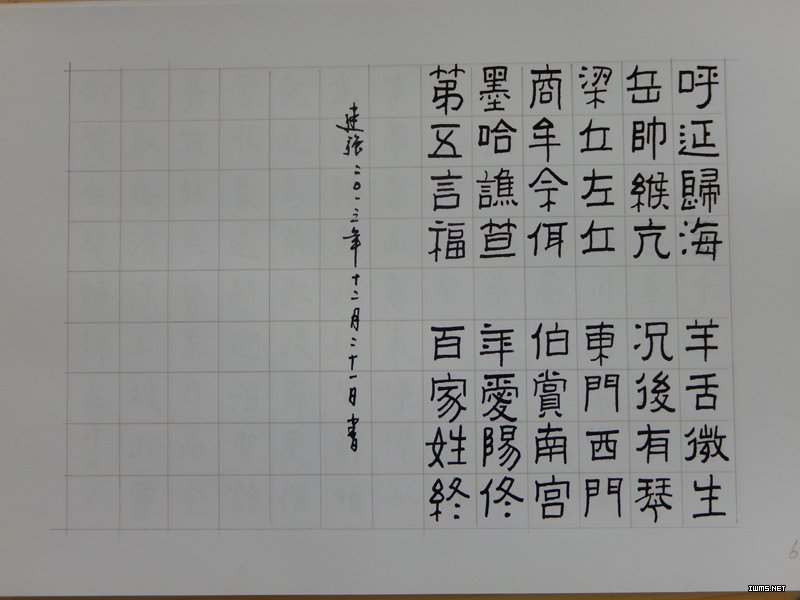 呼延歸海 羊舌微生
岳帥緱亢 況後有琴
梁丘左丘 東門西門
商牟佘佴 伯賞南宮
墨哈譙笪 年愛陽佟
第五言福 百家姓終
建強二〇一三年十二月二十一日書
IWMS.NET